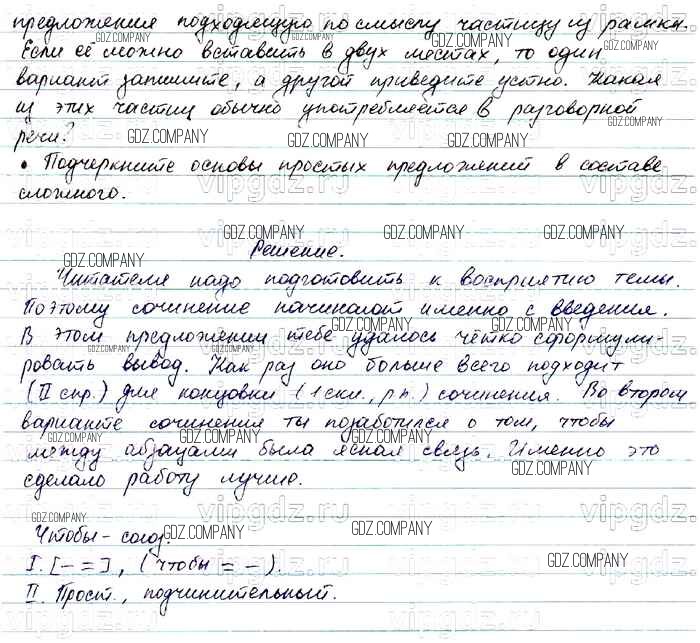 предложения подходящую по смыслу частицу из рамки.
Если её можно вставить в двух местах, то один
вариант запишите, а другой приведите устно. Какая
из этих частиц обычно употребляется в разговорной
речи?
• Подчеркните основы простых предложений в составе
сложного.
Решение.
Читателя надо подготовить к восприятию темы.
Поэтому сочинение начинают именно с введения.
В этом предложении тебе удалось чётко сформули-
ровать вывод. Как раз оно больше всего подходит
(II спр.) для концовки (1 скл., р.п.) сочинения. Во втором
варианте сочинения ты позаботился о том, чтобы
между абзацами была ясная связь. Именно это
сделало работу лучше.
Чтобы - союз.
I. [– =], (чтобы = –).
II. Прост., подчинительный.